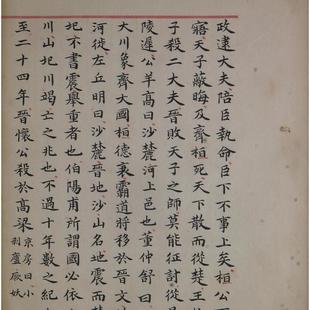 政逮大夫陪臣執命臣下不事上矣桓公
寤天子蔽晦及齊桓死天下散而從楚王
子殺二大夫晉敗天子之師莫能征討從是
陵遲公羊高曰沙麓河上邑也董仲舒曰
大川象齊大國桓德衰霸道將移於晉文
河徙左丘明曰沙麓晉地沙山名地震而
圮不書震舉重者也伯陽甫所謂國必依
川山圮川竭亡之兆也不過十年數之紀
至二十四年晉懷公殺於高梁京房曰小
剝廬厥妖